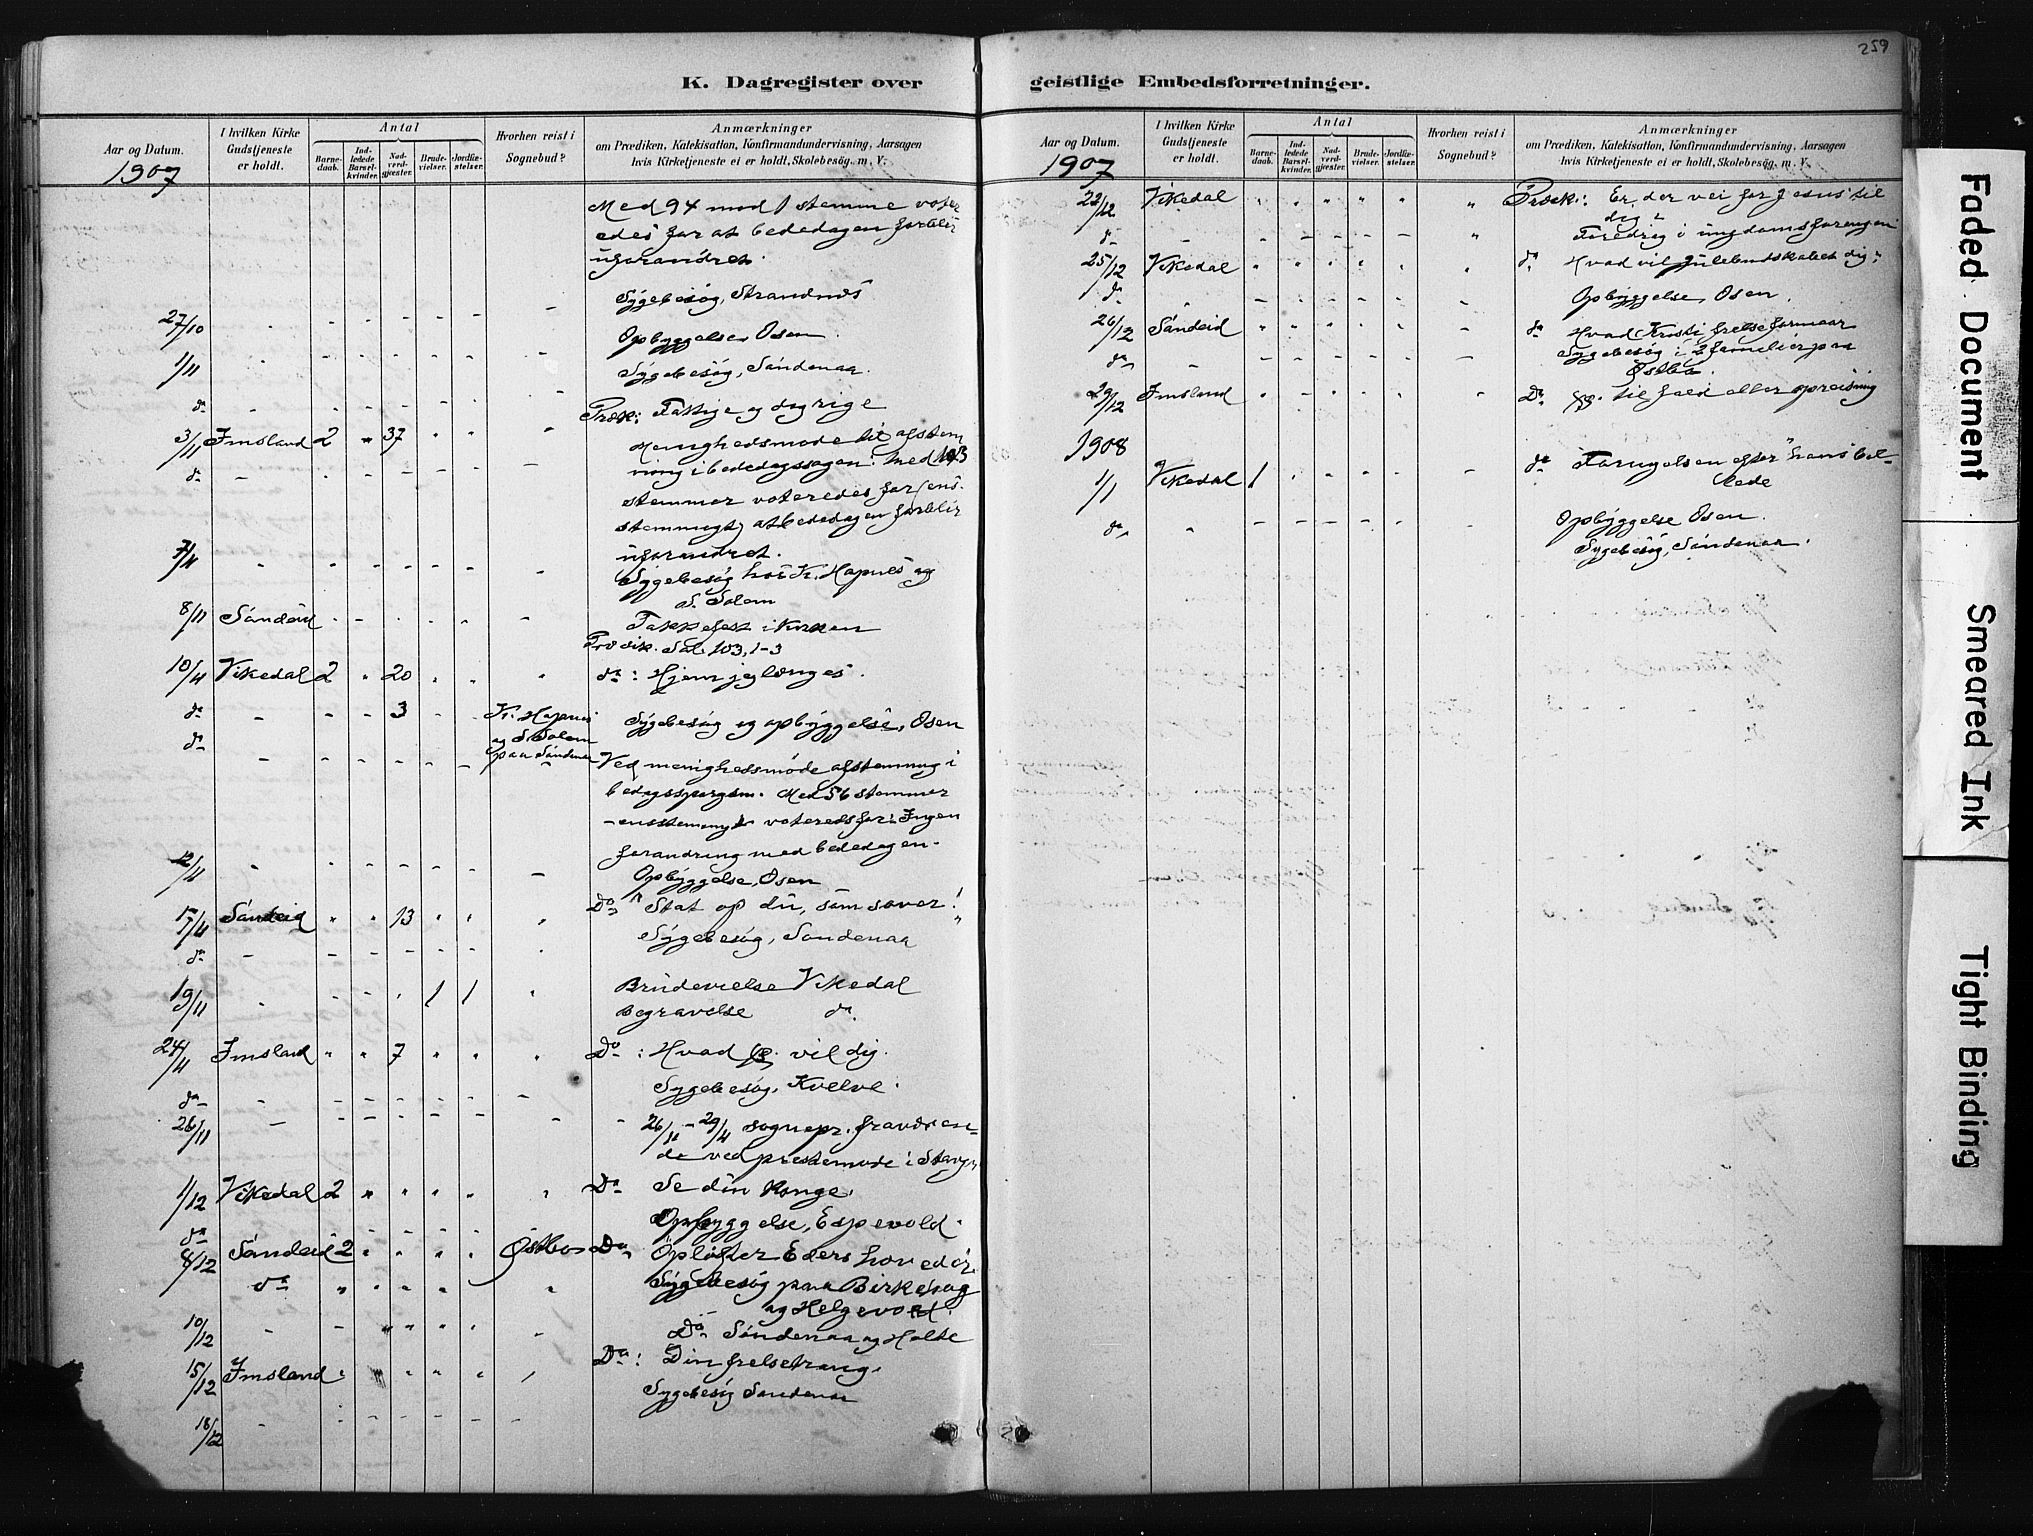 259
K. Dagregister over geistlige Embedsforretninger.
Aar og Datum.
1907
I hvilken Kirke Gudstjeneste er holdt.
Antal
Barnedaab.
Indledede Barselkvinder.
Nadverdgjester.
Brudevielser.
Jordfæstelser.
Hvorhen reist i Sognebud?
Anmærkninger
om Prædiken, Katekisation, Konfirmandundervisning, Aarsagen
hvis Kirketjeneste ei er holdt, Skolebesøg. m. V.
Med 94 mod 1 stemme voter
edes for at bededagen forblir
uforandret.
Sygebesøg, Strandnes
27/10 Opbyggelse, Osen.
1/11 Sygebesøg, Søndenaa.
do Præk: Fattige og dog rige
3/11 Imsland 2 " 37 " " " Menighedsmøde til afstem
ning i bededagssagen: Med 103
do stemmer voteredes for (ens-
stemmigt) at bededagen forblir
uforandret.
7/11 Sygebesøg hos K. Hapnes og
S. Solem
8/11 Søndeid Takkefest i kirken
Prædik. Sal. 103, 1-3
10/11 Vikedal 2 " 20 " " " do: Hjem jeg længes.
do 3 K. Hapnes og S. Solem paa Søndenaa Sygebesøg og opbyggelse, Osen
do Ved menighedsmøde afstemning i
bedagsspørgsm. Med 56 stemmer
- enstemmigt voteredes for: Ingen
forandring med bededagen.
12/11 Opbyggelse, Osen
17/11 Søndeid " " 13 " " " Do "Stat op du, som sover!"
do Sygebesøg, Søndenaa
19/11 1 1 " Brudevielse Vikedal
begravelse do.
24/11 Imsland " " 7 " " " Do: Hvad vil dig.
do Sygebesøg, Kvelve.
26/11 26/11 - 29/11 sognepr. fraværen-
de ved prestemøde i Stavgr.
1/12 Vikedal 2 " " " " " Do Se din konge.
do Opbyggelse, Espevold.
8/12 Søndeid 2 " " " " Østbø Do Opløfter Eders hoveder
do Sygebesøg paa Birkeskog
og Helgevold.
10/12 Do Søndenaa og Holte
15/12 Imsland Do: Din frelsetrang.
Sygebesøg Søndenaa
18/12
Aar og Datum.
1907
I hvilken Kirke Gudstjeneste er holdt.
Antal
Barnedaab.
Indledede Barselkvinder.
Nadverdgjester.
Brudevielser.
Jordfæstelser.
Hvorhen reist i Sognebud?
Anmærkninger
om Prædiken, Katekisation, Konfirmandundervisning, Aarsagen
hvis Kirketjeneste ei er holdt, Skolebesøg. m. V.
22/12 Vikedal Præk: Er der vei for Jesus til
dig?
do Foredrag i ungdomsforeningen
25/12 Vikedal do Hvad vil julebudskabet dig?
do Opbyggelse, Osen.
26/12 Søndeid do Hvad Kristi frelse formaar
do Sygebesøg i 2 familier paa
Østbø.
29/12 Imsland Do til fald eller opreisning
1908
1/1 Vikedal 1 do Fornyelsen efter "hans bil-
lede
do Opbyggelse Osen.
Sygebesøg, Søndenaa.
Faded Document
Smeared Ink
Tight Binding